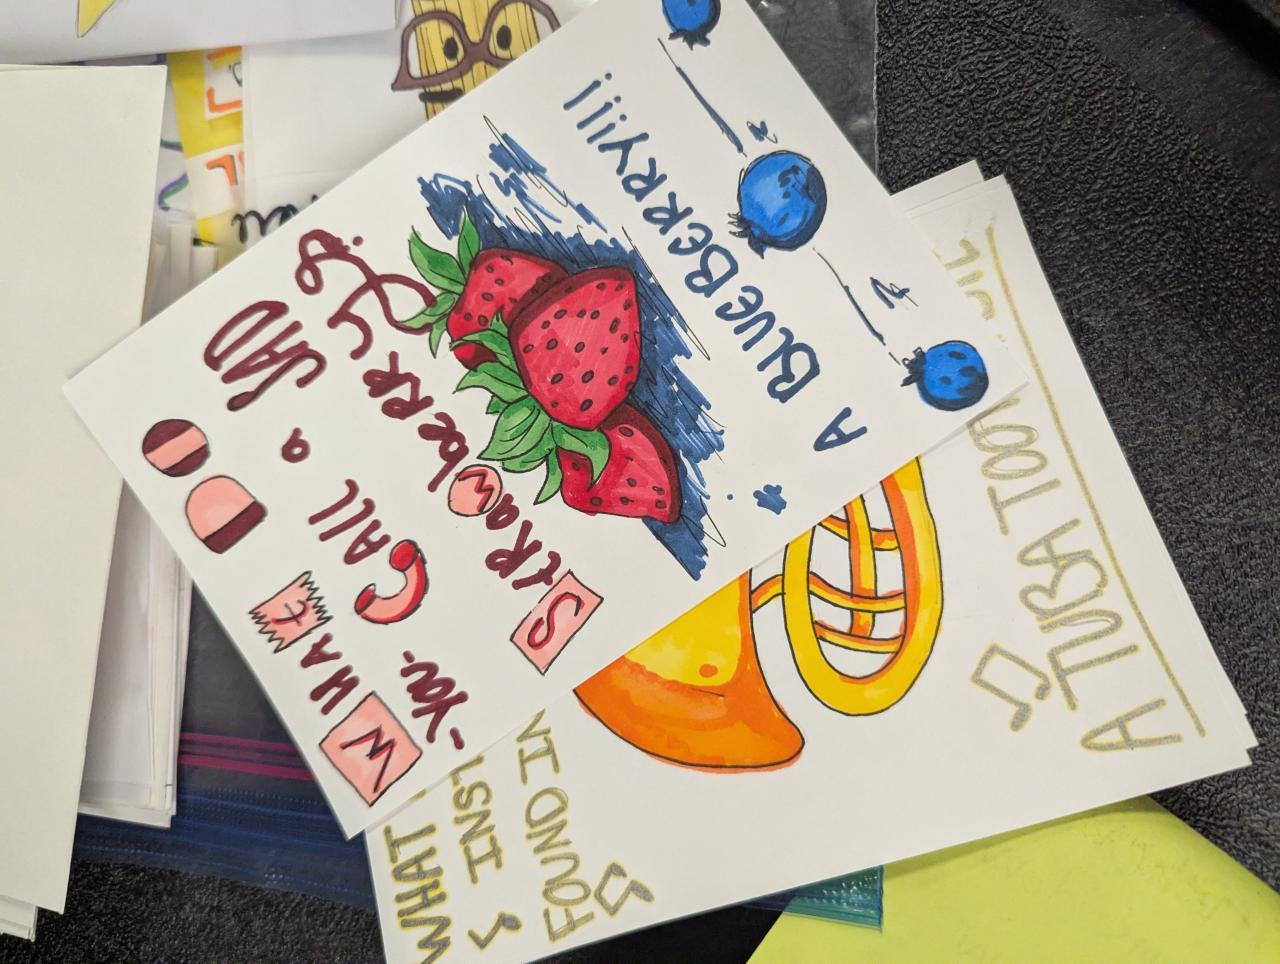 WHAt DO
-You- CALL a SAD
StRawbeRRY?
A BLUEBERRY!!!
WHAT
FOUND IN
A TUBA